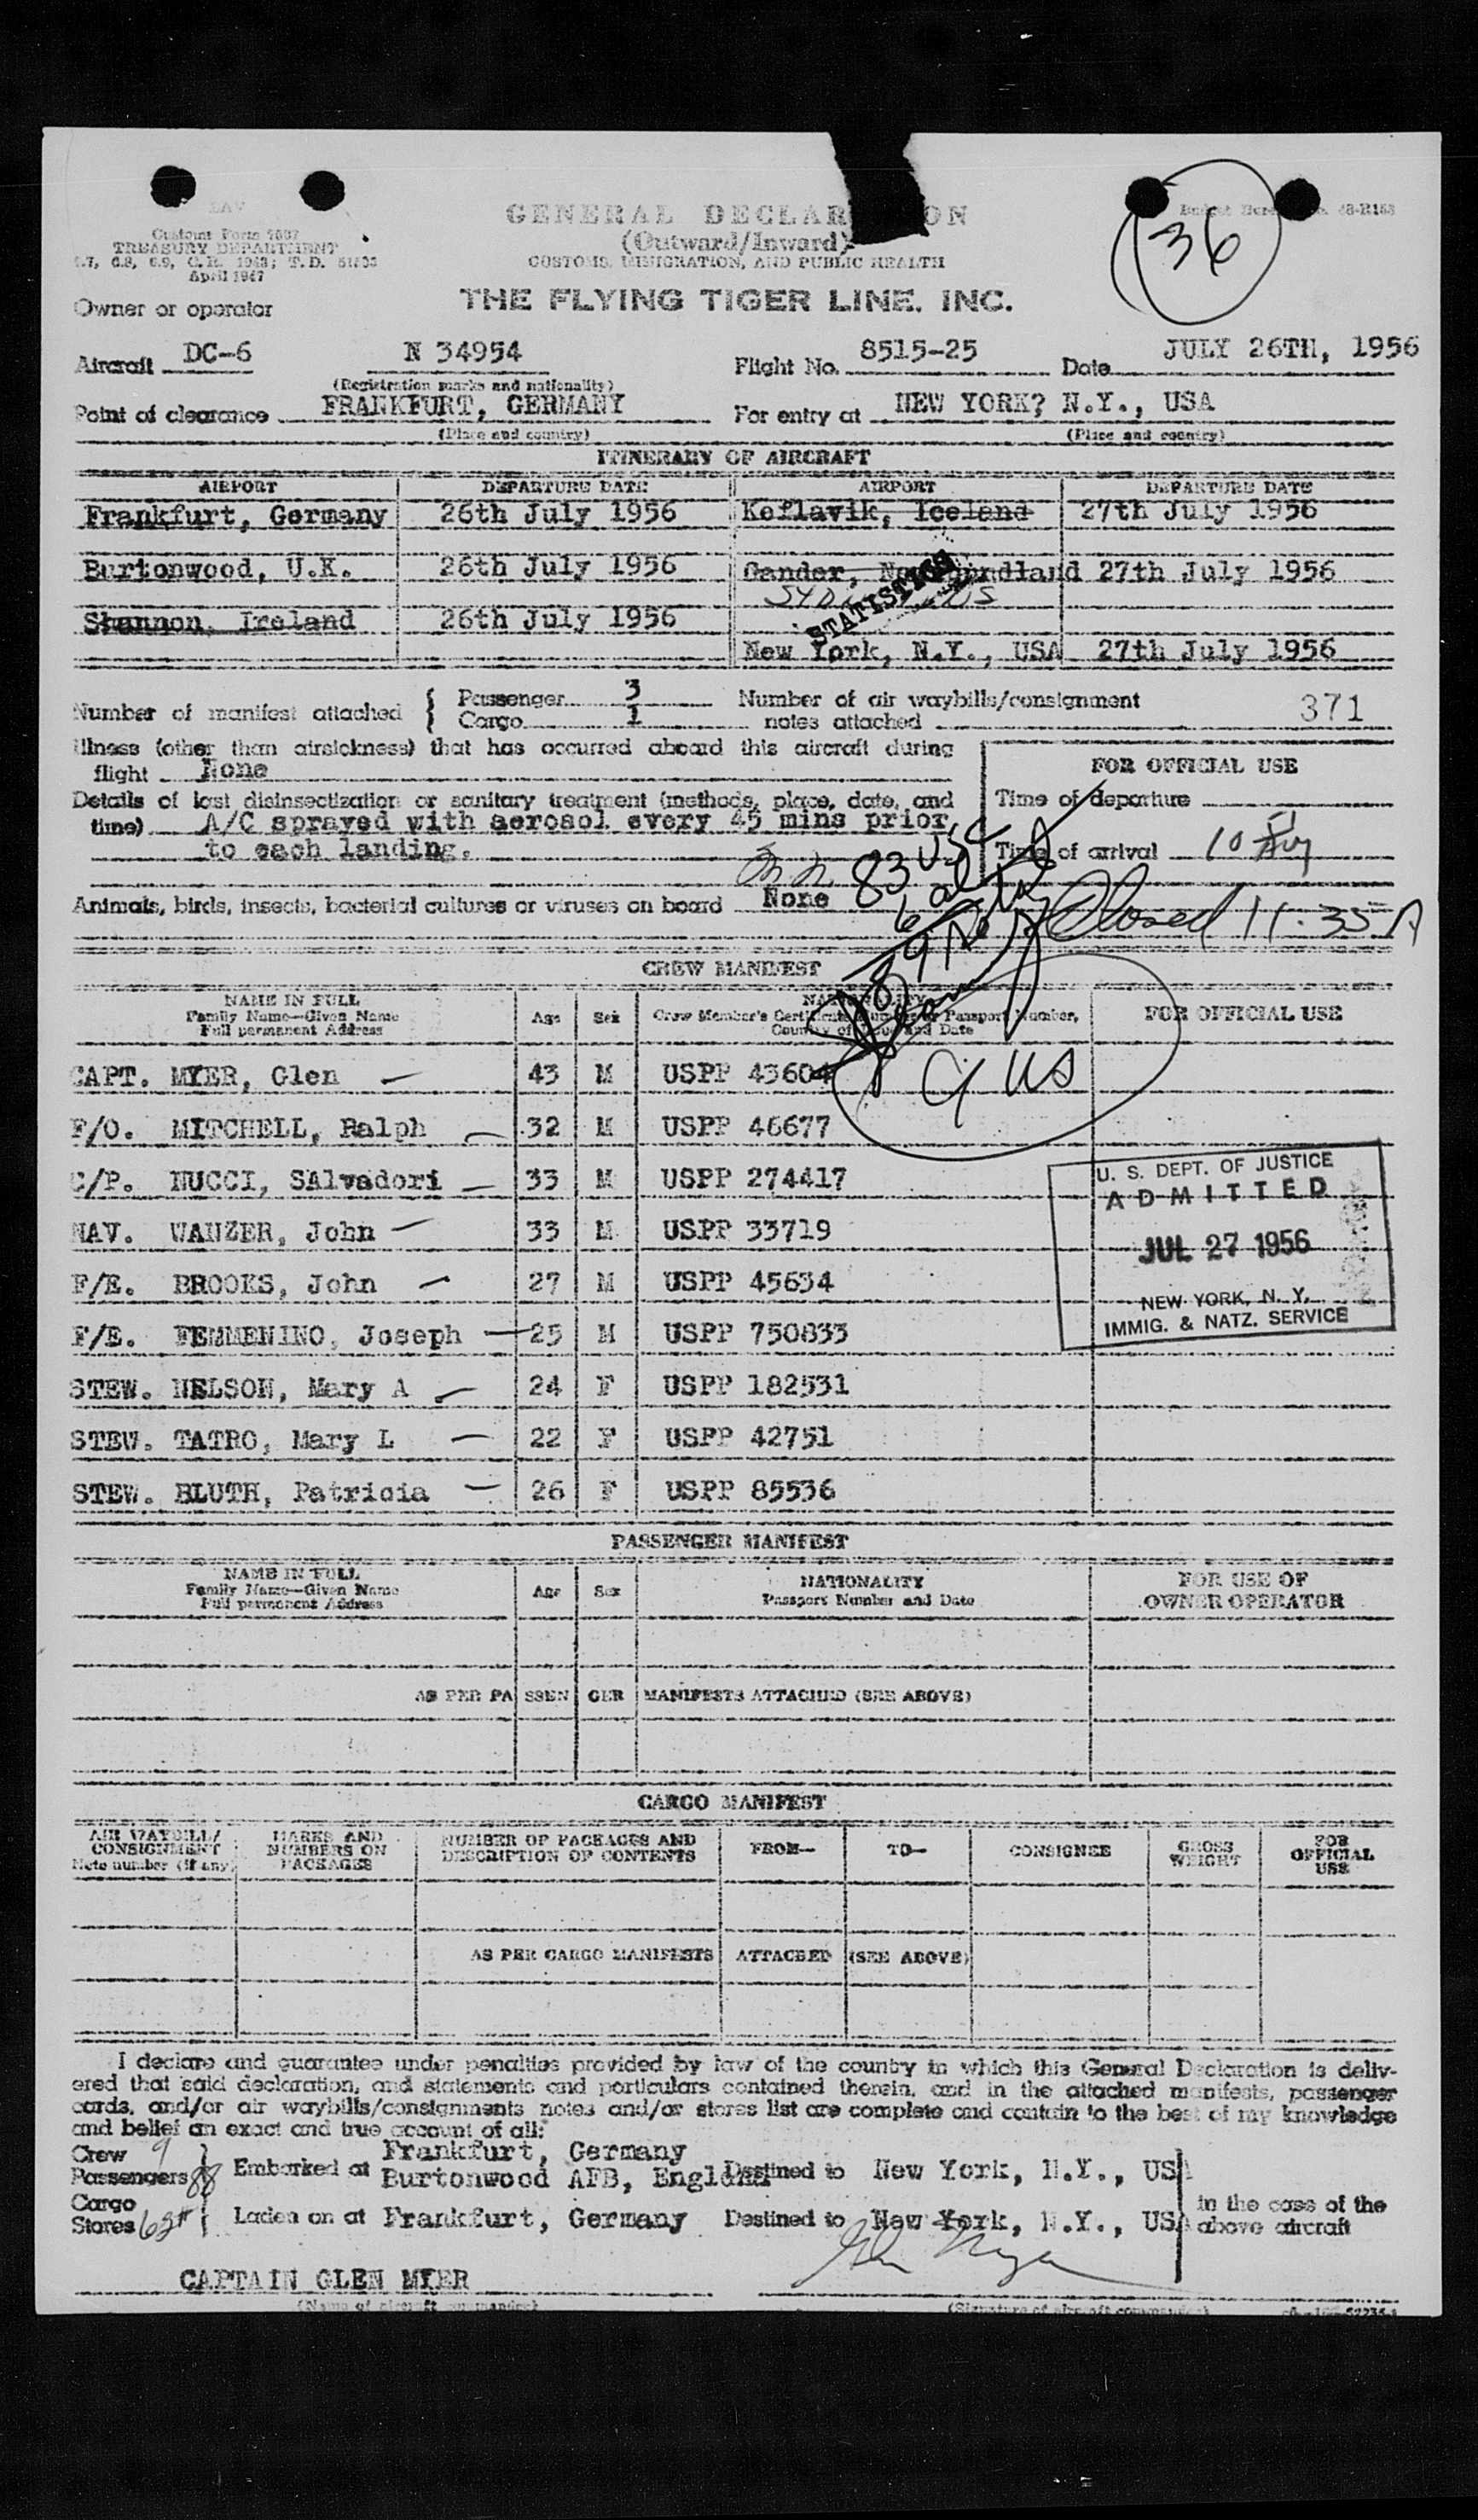 GENERAL DECLAR ON
(Outward/Inward)
CUSTOMS, IMMIGRATION, AND PUBLIC HEALTH
Customs Form 7507
TREASURY DEPARTMENT
April 1947
36
Owner or operator
THE FLYING TIGER LINE, INC.
Aircraft DC-6 N 34954 Flight No. 8515-25 Date JULY 26TH, 1956
(Registration marks and nationality)
Point of clearance FRANKFURT, GERMANY For entry at NEW YORK? N.Y., USA
(Place and country) (Place and country)
ITINERARY OF AIRCRAFT
AIRPORT DEPARTURE DATE AIRPORT DEPARTURE DATE
Frankfurt, Germany 26th July 1956 Keflavik, Iceland 27th July 1956
Burtonwood, U.K. 26th July 1956 Gander, Newfoundland 27th July 1956
STATISTICS
Shannon, Ireland 26th July 1956
New York, N.Y., USA 27th July 1956
Number of manifest attached { Passenger 3 Number of air waybills/consignment
Cargo 1 notes attached 371
Illness (other than airsickness) that has occurred aboard this aircraft during
flight None
FOR OFFICIAL USE
Details of last disinsectization or sanitary treatment (methods, place, date, and
time) A/C sprayed with aerosol every 45 mins prior
to each landing.
Time of departure
Time of arrival 10
83 USC
Animals, birds, insects, bacterial cultures or viruses on board None
Closed 11:35 A
CREW MANIFEST
NAME IN FULL
Family Name—Given Name
Full permanent Address
Age Sex
NATIONALITY
Crew Member's Certificate Number or Passport Number,
Country of Issue and Date
FOR OFFICIAL USE
9 US
CAPT. MYER, Glen 43 M USPP 43604
F/O. MITCHELL, Ralph 32 M USPP 46677
C/P. NUCCI, SAlvadori 33 M USPP 274417
NAV. WANZER, John 33 M USPP 33719
F/E. BROOKS, John 27 M USPP 45634
F/E. FEMMENINO, Joseph 25 M USPP 750833
STEW. NELSON, Mary A 24 F USPP 182531
STEW. TATRO, Mary L 22 F USPP 42751
STEW. BLUTH, Patricia 26 F USPP 85536
U. S. DEPT. OF JUSTICE
ADMITTED
JUL 27 1956
NEW YORK, N. Y.
IMMIG. & NATZ. SERVICE
PASSENGER MANIFEST
NAME IN FULL
Family Name—Given Name
Full permanent Address
Age Sex
NATIONALITY
Passport Number and Date
FOR USE OF
OWNER OPERATOR
AS PER PASSENGER MANIFESTS ATTACHED (SEE ABOVE)
CARGO MANIFEST
AIR WAYBILL/
CONSIGNMENT
Note number (if any)
MARKS AND
NUMBERS ON
PACKAGES
NUMBER OF PACKAGES AND
DESCRIPTION OF CONTENTS
FROM— TO— CONSIGNEE
GROSS
WEIGHT
FOR
OFFICIAL
USE
AS PER CARGO MANIFESTS ATTACHED (SEE ABOVE)
I declare and guarantee under penalties provided by law of the country in which this General Declaration is deliv-
ered that said declaration, and statements and particulars contained therein, and in the attached manifests, passenger
cards, and/or air waybills/consignments notes and/or stores list are complete and contain to the best of my knowledge
and belief an exact and true account of all:
Crew 9 Frankfurt, Germany
Passengers 88 Embarked at Burtonwood AFB, England Destined to New York, N.Y., USA
Cargo
Stores 62# Laden on at Frankfurt, Germany Destined to New York, N.Y., USA
in the case of the
above aircraft
Glen Myer
CAPTAIN GLEN MYER
(Name of aircraft commander) (Signature of aircraft commander)